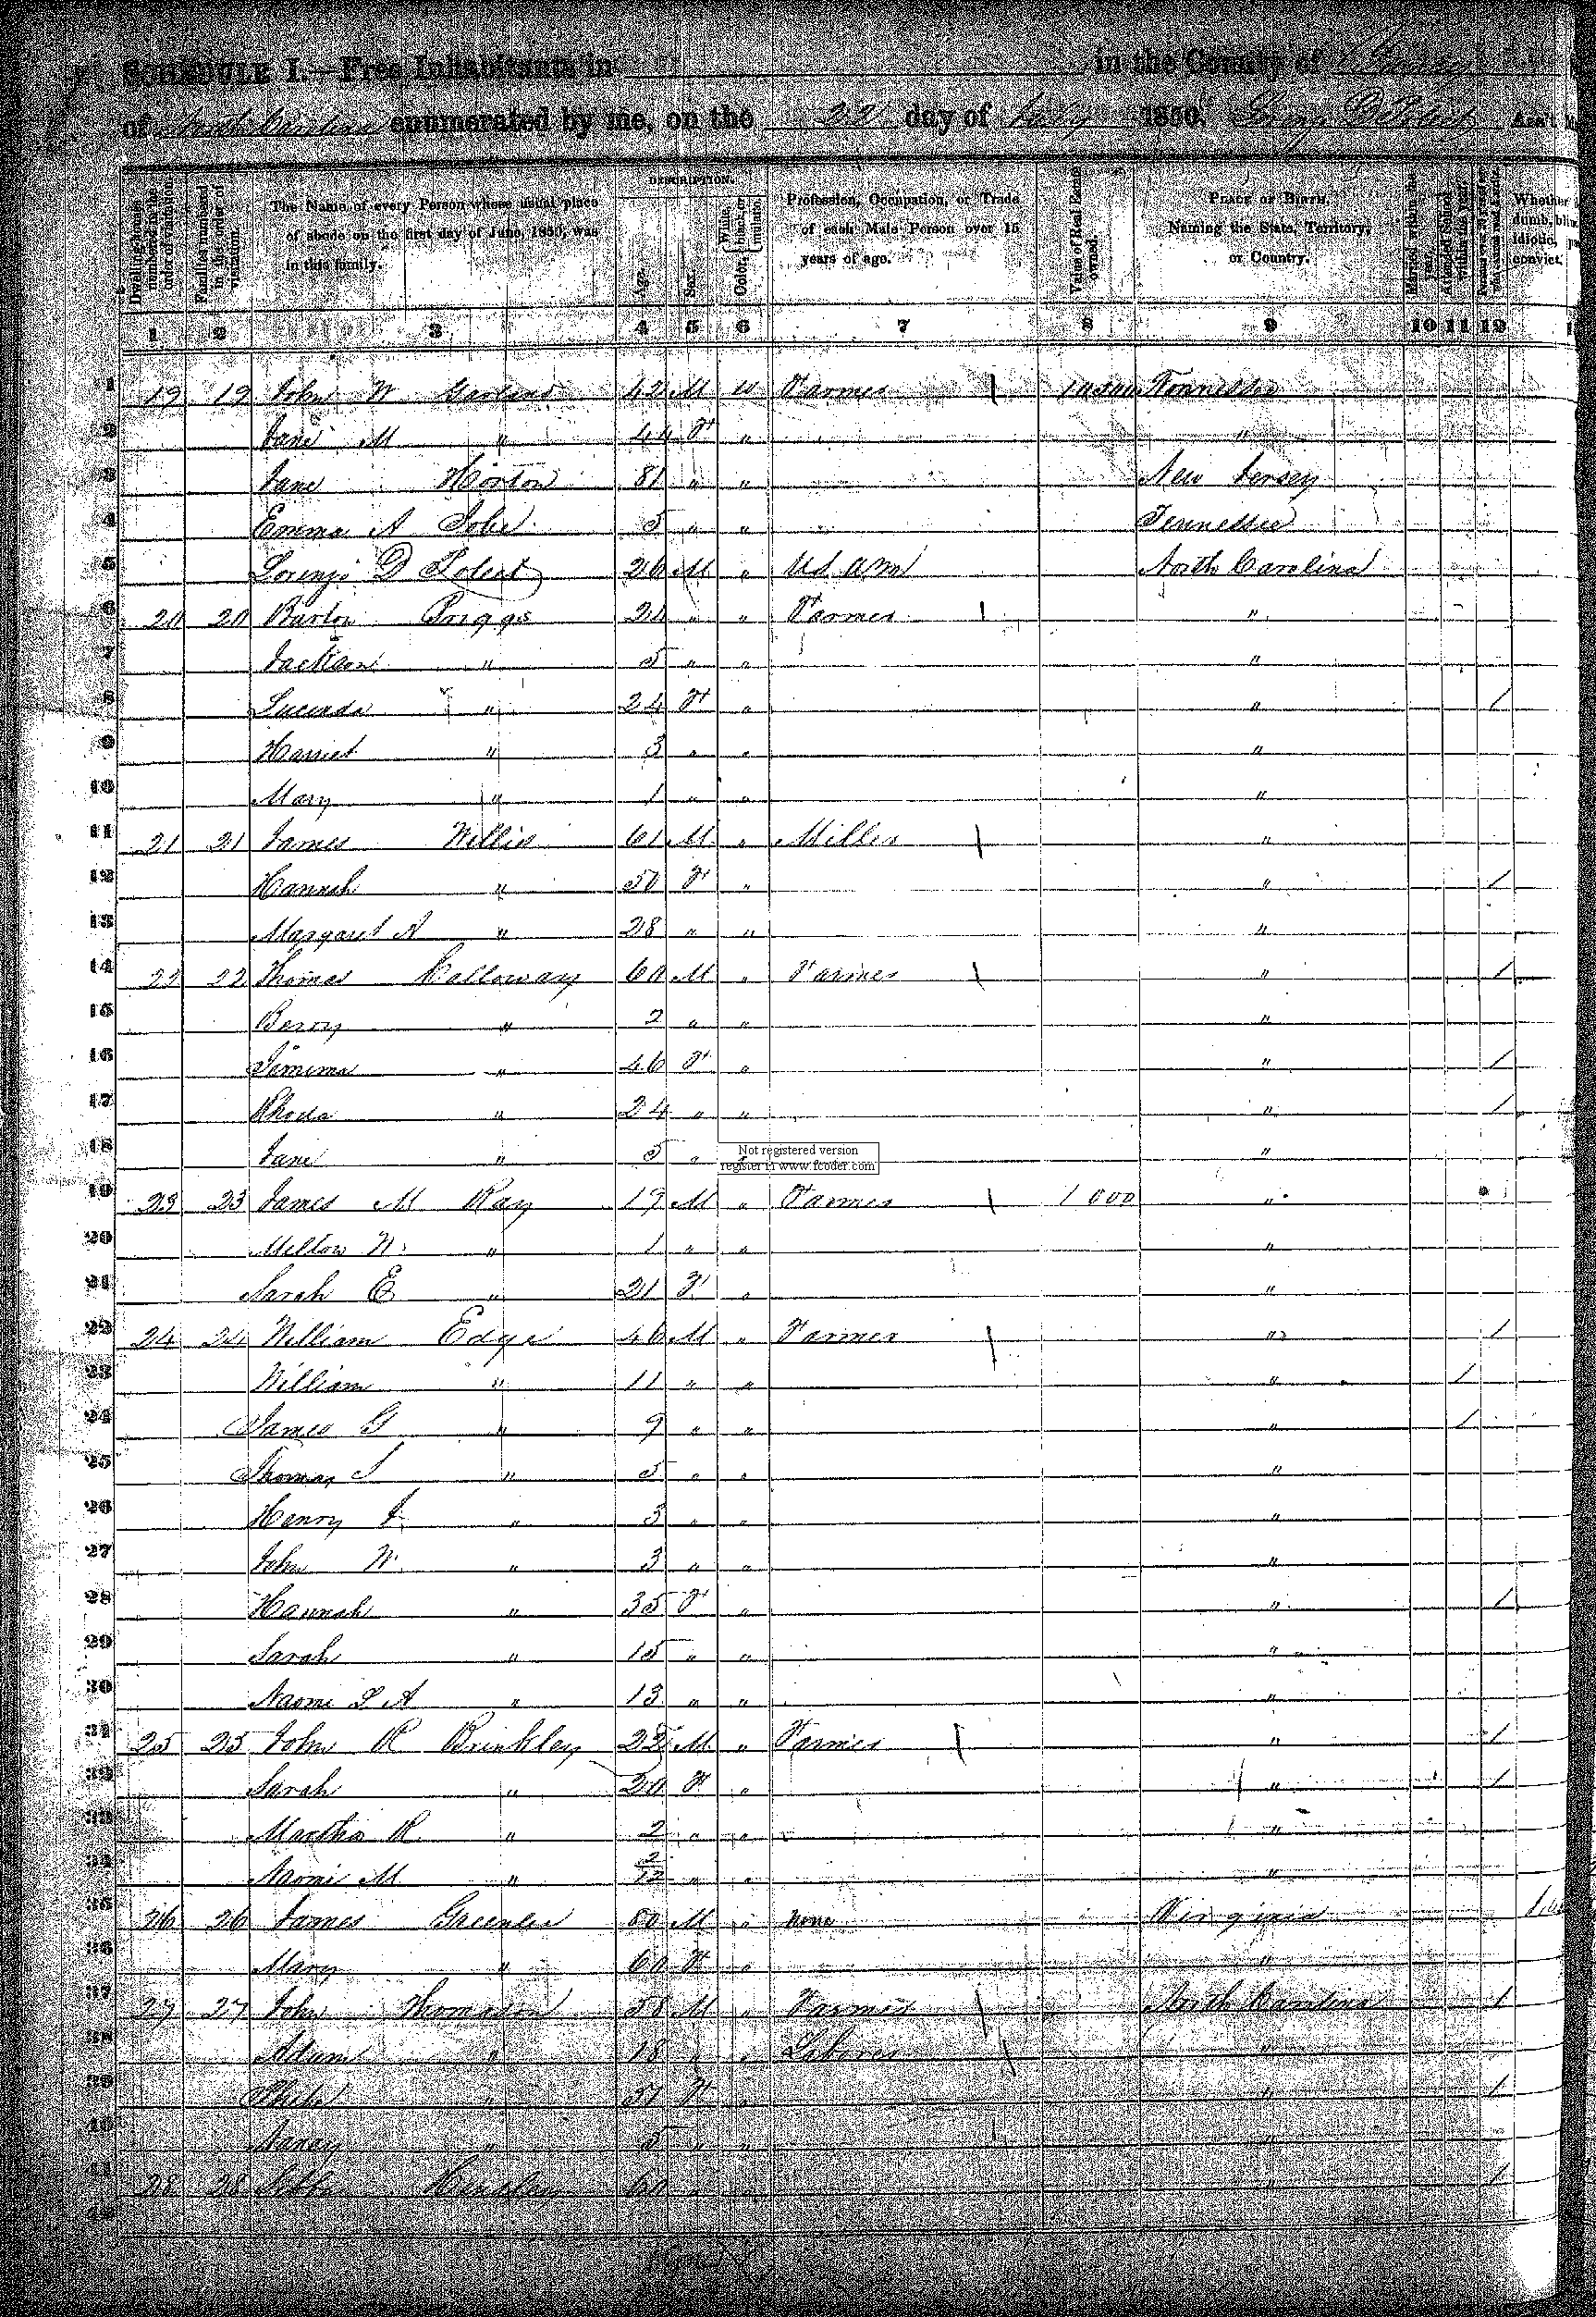 SCHEDULE I.—Free Inhabitants in in the County of
of North Carolina enumerated by me, on the 22 day of July 1850. Ass't
DESCRIPTION.
Dwelling-house numbered in the order of visitation.
Families numbered in the order of visitation.
The Name of every Person whose usual place of abode on the first day of June, 1850, was in this family.
Age.
Sex.
Color, White, black, or mulatto.
Profession, Occupation, or Trade of each Male Person over 15 years of age.
Value of Real Estate owned.
PLACE OF BIRTH. Naming the State, Territory, or Country.
Married within the year.
Attended School within the year.
Whether dumb, idiotic, convict.
1 2 3 4 5 6 7 8 9 10 11 12
1 19 19 John W Garland 42 M W Farmer Tennessee
2 Jane M " 44 F " "
3 Jane Horton 81 " " New Jersey
4 Emma A 5 " " Tennessee
5 Lorenzo D 26 M " North Carolina
6 20 20 Barton Briggs 24 " " Farmer "
7 Jackson " 5 " " "
8 Lucinda " 24 F " " /
9 Harriet " 3 " " "
10 Mary " 1 " " "
11 21 21 James Willis 61 M " Miller "
12 Hannah " 50 F " " /
13 Margaret A " 28 " " "
14 22 22 Thomas Calloway 60 M " Farmer " /
15 Berry " 2 " " "
16 Jimima " 46 F " " /
17 Rhoda " 24 " " " /
18 Jane " 5 " " "
Not registered version
register in www.fcoder.com
19 23 23 James M Ray 19 M " Farmer 1000 "
20 Melton W. " 1 " " "
21 Sarah E " 21 F " "
22 24 24 William Edge 46 M " Farmer " /
23 William " 11 " " " /
24 James G " 9 " " " /
25 Thomas S " 5 " " "
26 Henry " 3 " " "
27 John W. " 3 " " "
28 Hannah " 35 F " " /
29 Sarah " 15 " " "
30 Naomi S A " 13 " " "
31 25 25 John R Brinkley M " Farmer " /
32 Sarah " 20 F " " /
33 Martha R. " 2 " " "
34 Naomi M " 2/12 " " "
35 26 26 James Greenlee 80 M " None Virginia
36 Mary " 60 F " "
37 27 27 John Thomason 58 M " Farmer North Carolina /
38 Adam " 18 " " Laborer "
39 " 51 F " " /
40 Nancy " 5 " " "
41 28 28 60 " " " /
42